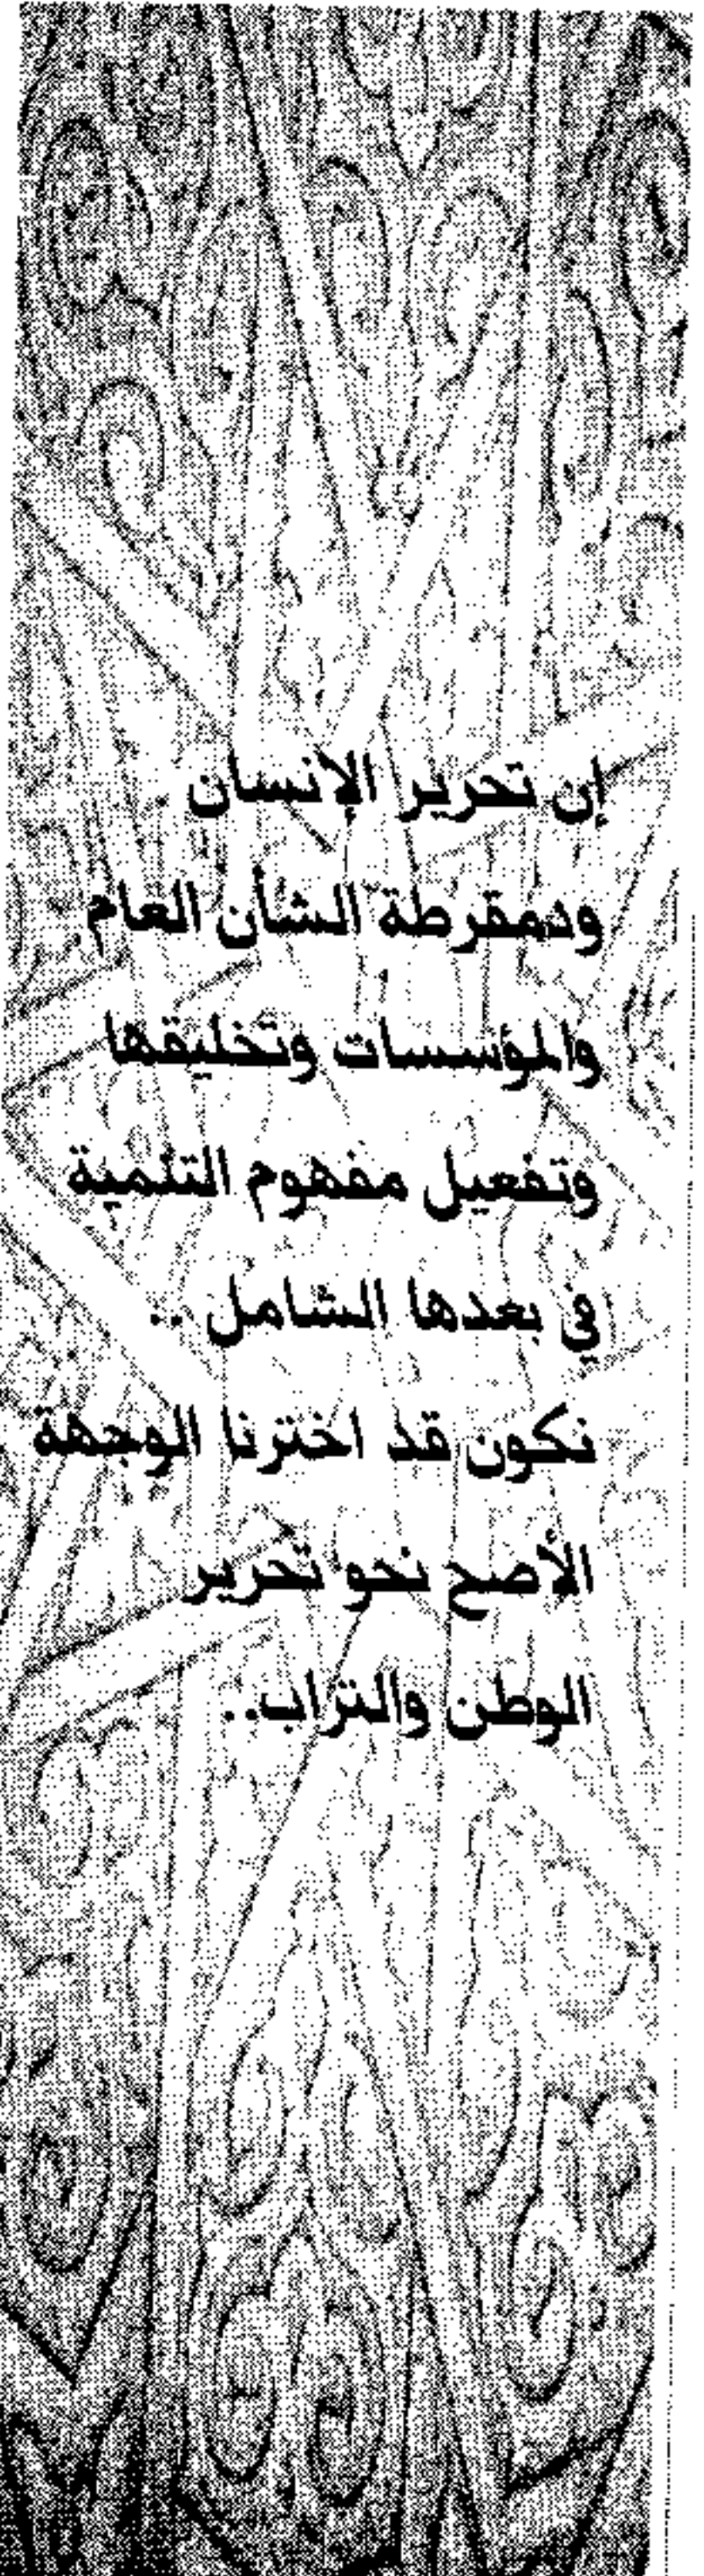 إن تحرير الإنسان
ودمقرطة الشأن العام
والمؤسسات وتخليقها
وتفعيل مفهوم التنمية
في بعدها الشامل ..
نكون قد اخترنا الوجهة
الأصح نحو تحرير
الوطن والتراب..